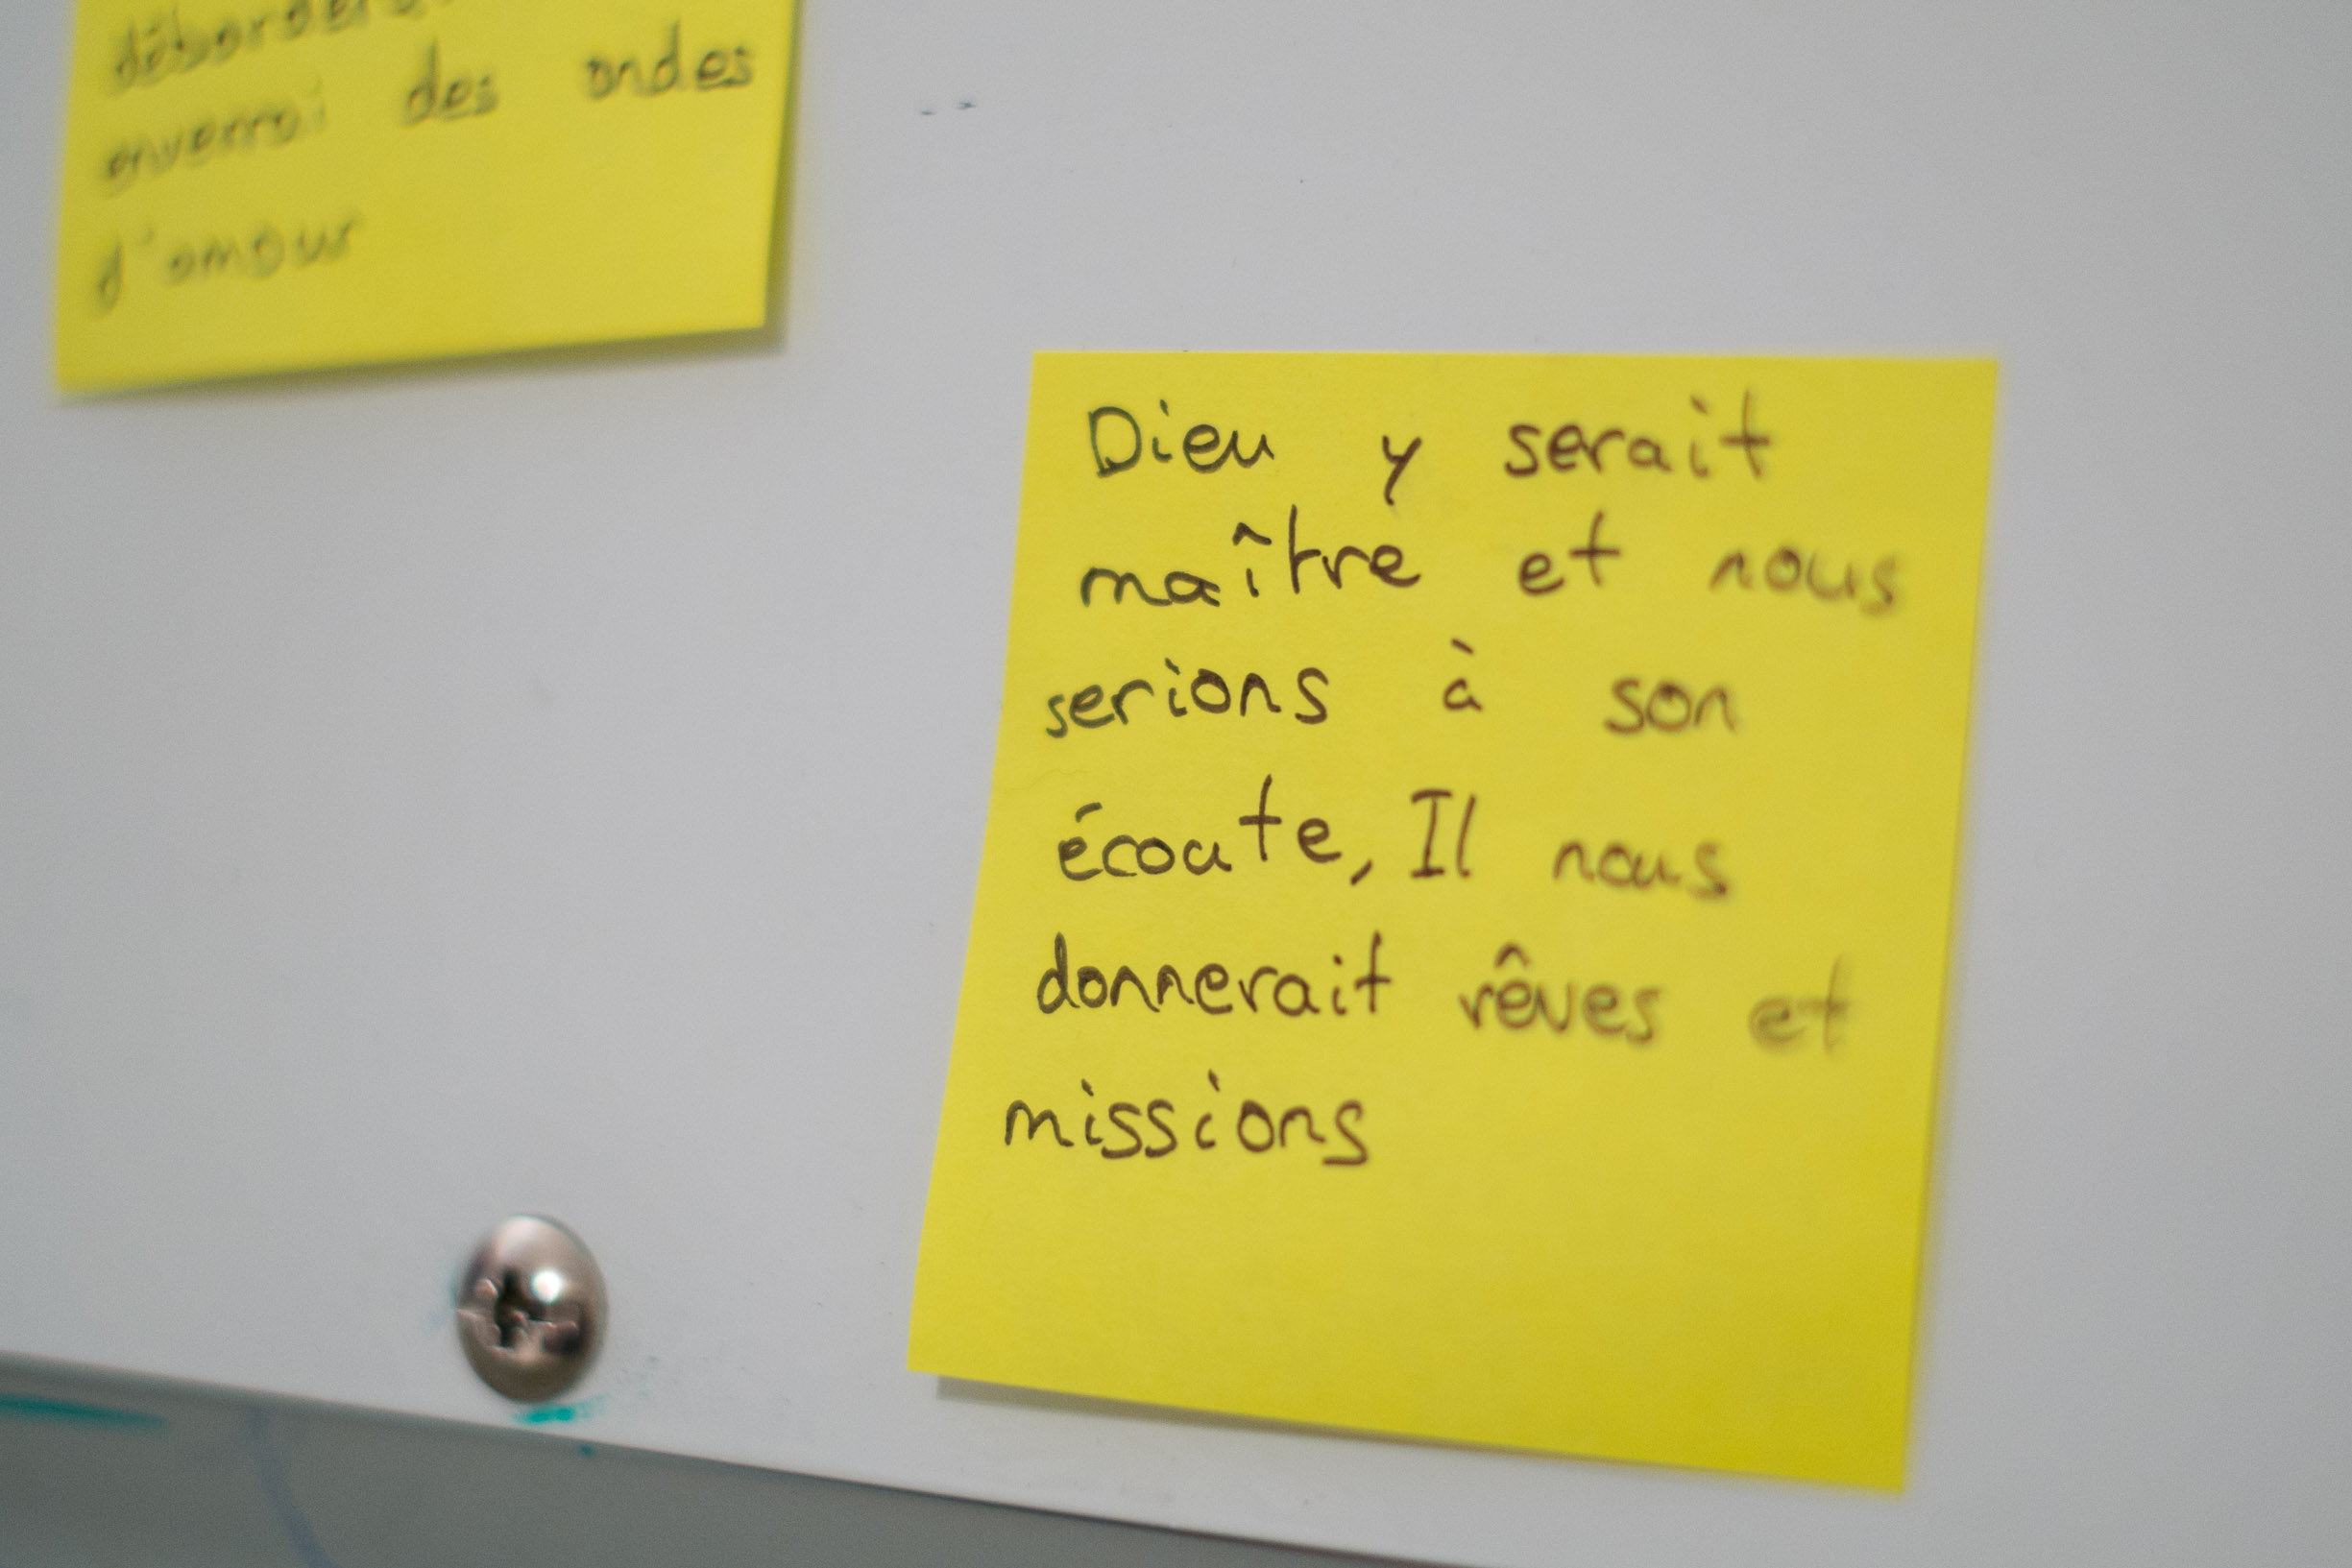 enverrai des ondes
d'amour
Dieu y serait
maître et nous
serions à son
écoute, Il nous
donnerait rêves et
missions